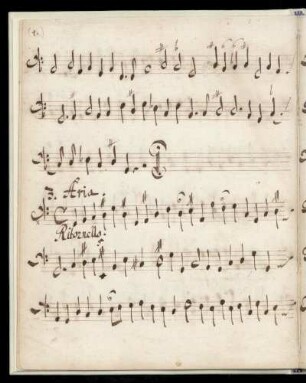 3. Aria.
Ritornello: